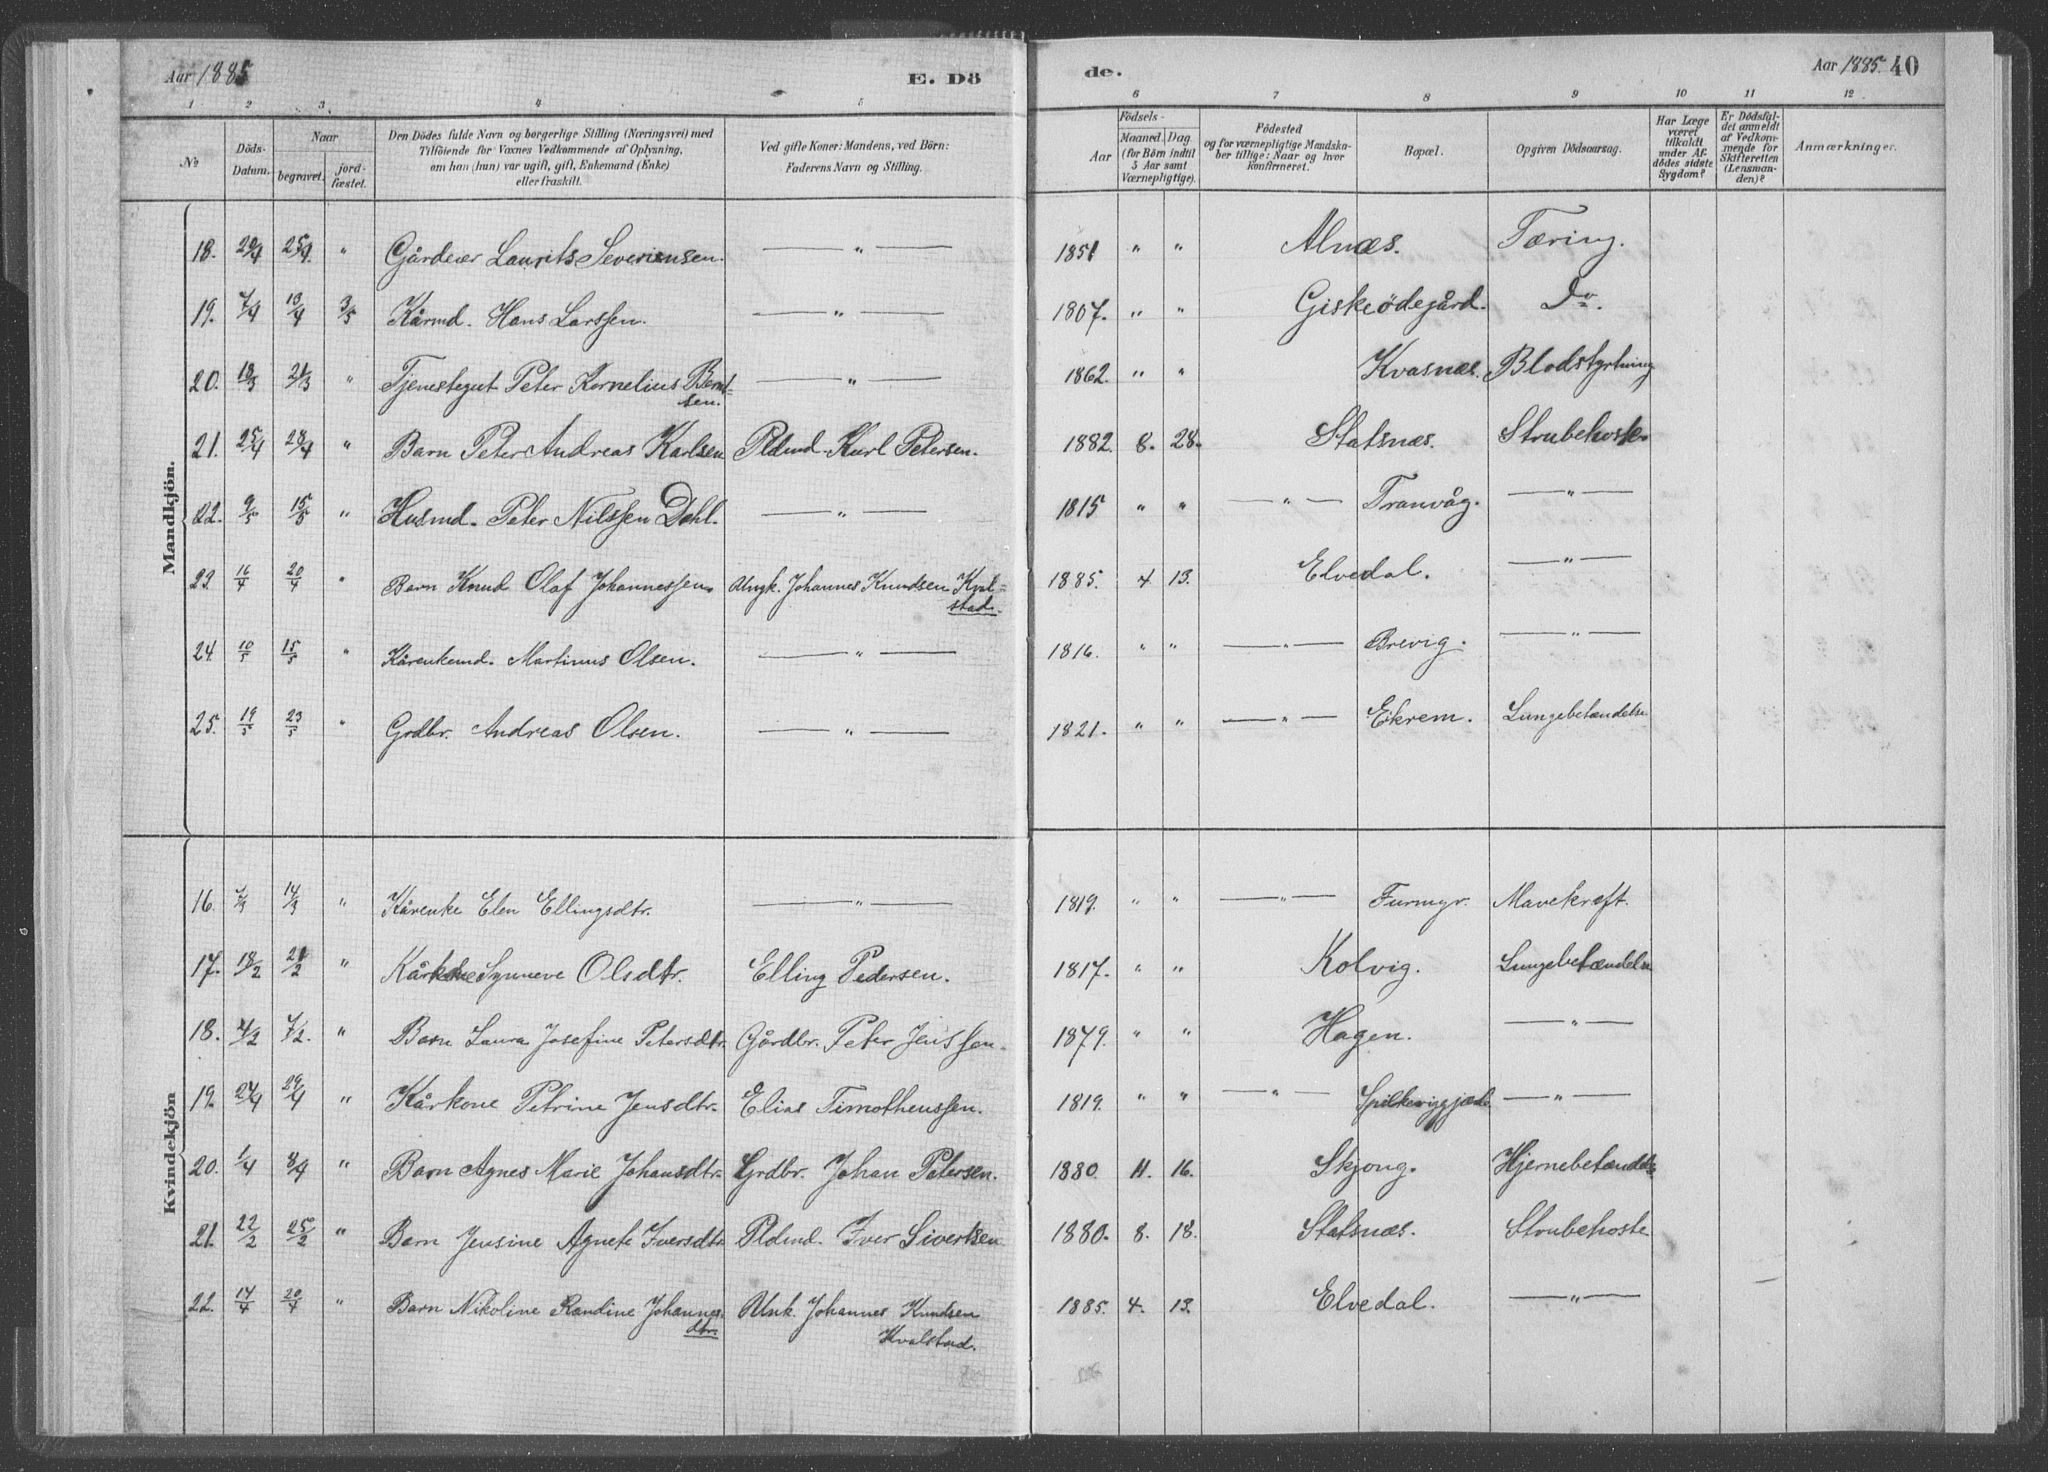 Aar 1885
E. Dö
de.
Aar 1885. 40
1 2 3 4 5 6 7 8 9 10 11 12
No
Döds-Datum.
Naar
begravet.
jord-fæstet.
Den Dödes fulde Navn og borgerlige Stilling (Næringsvei) med
Tilföiende for Voxnes Vedkommende af Oplysning,
om han (hun) var ugift, gift, Enkemand (Enke)
eller fraskilt.
Ved gifte Koner: Mandens, ved Börn:
Faderens Navn og Stilling.
Födsels-
Aar
Maaned. Dag.
(for Börn indtil
5 Aar samt
Værnepligtige).
Födested
og for værnepligtige Mandska-
ber tillige: Naar og hvor
konfirmeret.
Bopæl.
Opgiven Dödsaarsag.
Har Læge
været
tilkaldt
under Af-
dödes sidste
Sygdom?
Er Dödsfal-
det anmeldt
af Vedkom-
mende for
Skifteretten
(Lensman-
den)?
Anmærkninger.
Mandkjön.
18. 20/4 25/4 " Gårdeier Laurits Severiensen. — " — 1851 " " Alnæs. Tæring.
19. 7/4 13/4 3/5 Kårmd. Hans Larssen. — " — 1807. " " Giskeödegård. Do.
20. 18/3 21/3 " Tjenestegut Peter Kornelius Bernt-
sen. — " — 1862. " " Kvasnæs. Blodstyrtning
21. 25/4 28/4 " Barn Peter Andreas Karlsen Pldmd. Karl Petersen. 1882. 8. 28. Statsnæs. Strubehoste
22. 9/5 15/5 " Husmd. Peter Nilssen Dahl. — " — 1815 " " — " — Tranvåg. — " —
23. 16/4 20/4 " Barn Knud Olaf Johannessen Ungk. Johannes Knudsen Kval-
stad. 1885. 4 13. Elvedal. — " —
24. 10/5 15/5 " Kårenkemd. Martinus Olsen. — " — 1816. " " — " — Brevig. — " —
25. 19/5 23/5 " Grdbr. Andreas Olsen. — " — 1821. " " — " — Eikrem. Lungebetændelse
Kvindekjön
16. 7/3 14/3 " Kårenke Elen Ellingsdtr. — " — 1819. " " — " — Furmyr. Mavekræft.
17. 18/2 21/2 " Kårkone Synneve Olsdtr. Elling Pedersen. 1817. " " Kolvig. Lungebetændelse
18. 4/2 7/2. " Barn Laura Josefine Petersdtr. Gårdbr. Peter Jenssen. 1879. " " Hagen. — " —
19. 24/4 29/4 " Kårkone Petrine Jensdtr. Elias Timotheussen. 1819. " " — " — — " —
20. 1/4 8/4 " Barn Agnes Marie Johansdtr. Grdbr. Johan Petersen. 1880. 11. 16. Skjong. Hjernebetændelse
21. 22/2 25/2 " Barn Jensine Agnete Iversdtr. Pldmd. Iver Sivertsen 1880. 8. 18. Statsnæs. Strubehoste
22. 14/4 20/4 " Barn Nikoline Randine Johannes-
dtr. Unk. Johannes Knudsen
Kvalstad. 1885. 4. 13. Elvedal. — " —